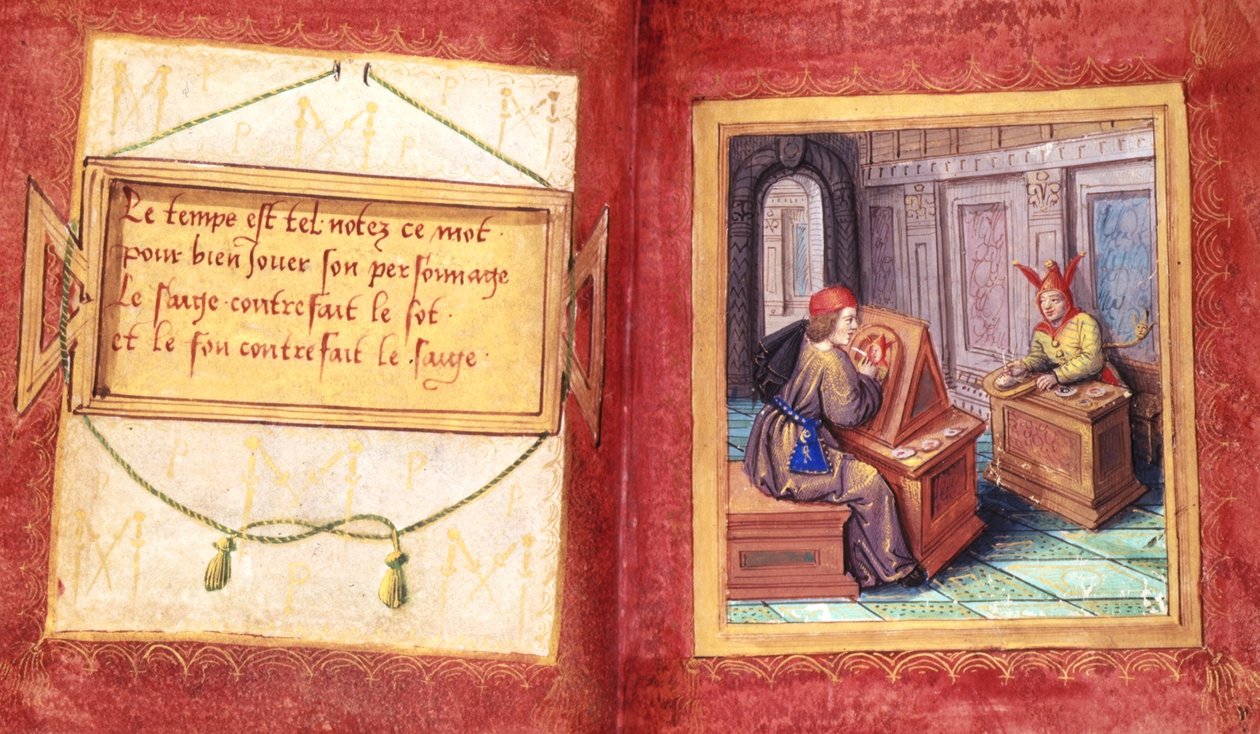 Le temps est tel · notez ce mot ·
pour bien Jouer son personnage
Le saige · contrefait le sot ·
et le fou contrefait le · saige ·